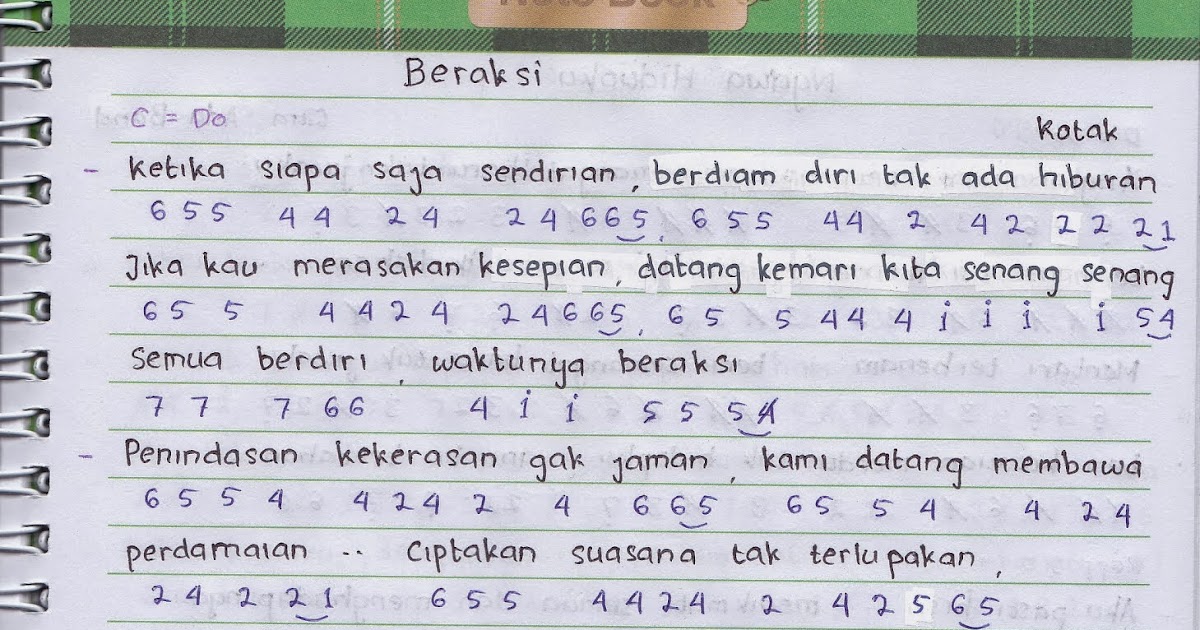 Note Book
Beraksi
C = Do
Kotak
- Ketika siapa saja sendirian, berdiam diri tak ada hiburan
6 5 5 4 4 2 4 2 4 6 6 5, 6 5 5 4 4 2 4 2 2 2 2 1
Jika kau merasakan kesepian, datang kemari kita senang senang
6 5 5 4 4 2 4 2 4 6 6 5, 6 5 5 4 4 4 i i i i 5 4
Semua berdiri, waktunya beraksi
7 7 7 6 6 4 i i 5 5 5 4
- Penindasan kekerasan gak jaman, kami datang membawa
6 5 5 4 4 2 4 2 4 6 6 5 6 5 5 4 4 2 4
perdamaian .. Ciptakan suasana tak terlupakan,
2 4 2 2 1 6 5 5 4 4 2 4 2 4 2 5 6 5